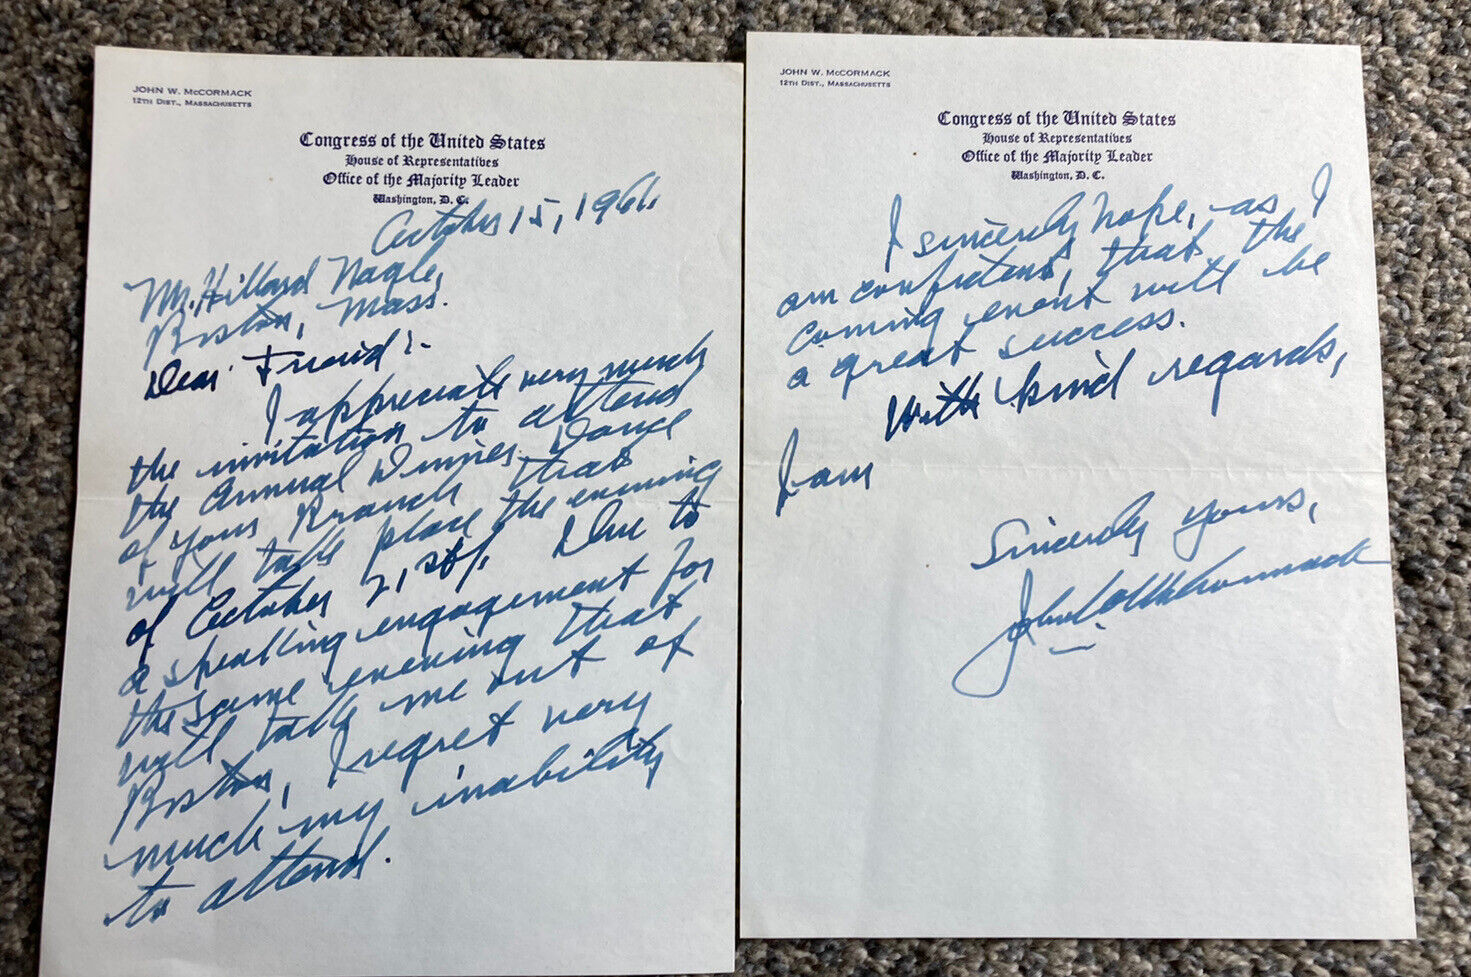 JOHN W. McCORMACK
12TH DIST., MASSACHUSETTS
Congress of the United States
House of Representatives
Office of the Majority Leader
Washington, D. C.
October 15, 1961
Mr. Hillard Nagle,
Boston, Mass.
Dear Friend:-
I appreciate very much
the invitation to attend
the Annual Dinner Dance
of your Branch that
will take place the evening
of October 21, st/. Due to
a speaking engagement for
the same evening that
will take me out of
Boston, I regret very
much my inability
to attend.
JOHN W. McCORMACK
12TH DIST., MASSACHUSETTS
Congress of the United States
House of Representatives
Office of the Majority Leader
Washington, D. C.
I sincerely hope, as I
am confident, that the
coming event will be
a great success.
With kind regards,
I am
Sincerely yours,
John W. McCormack